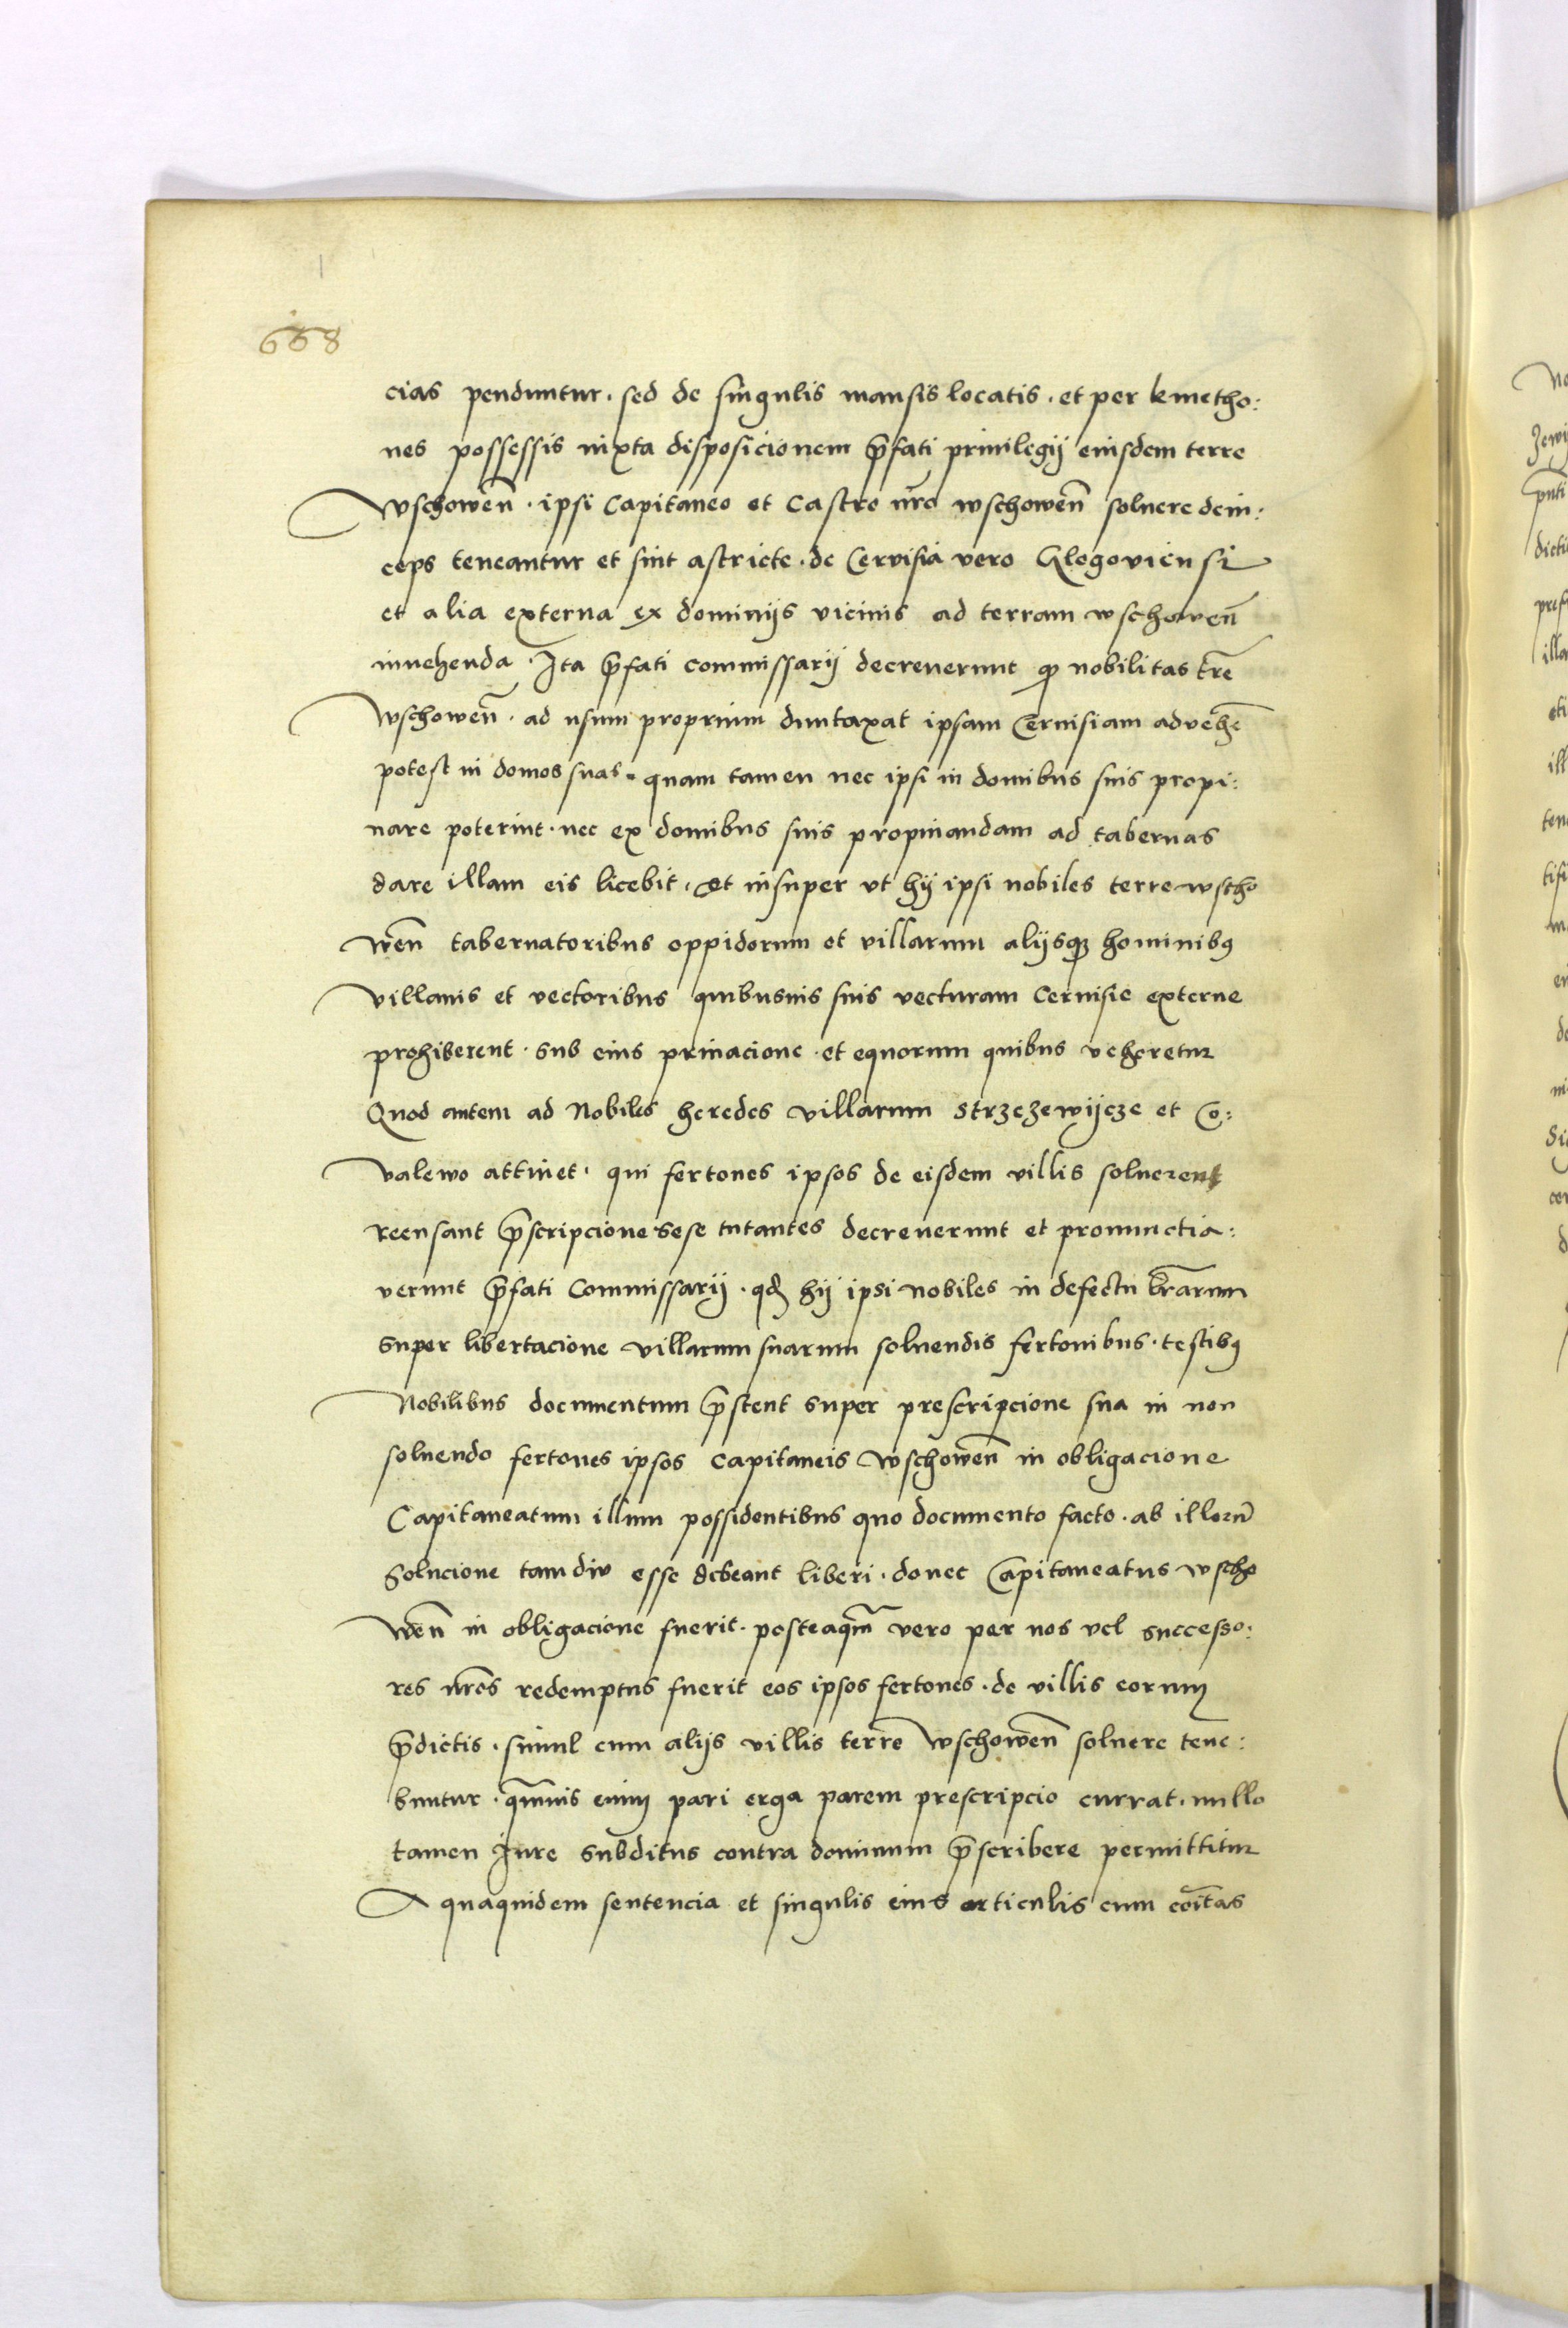 668
cias penduntur · sed de singulis mansis locatis · et per kmetho:
nes possessis iuxta disposicionem p̄fati priuilegij eiusdem terre
Wschowen̄ · ipsi Capitaneo et Castro nr̄o wschowen̄ soluere dein:
ceps teneantur et sint astricte · de Cervisia vero Glogoviensi
et alia externa ex dominijs vicinis ad terram wschowen̄
inuehenda · Ita p̄fati commissarij decreuerunt ꝙ nobilitas tr̄e
Wschowen̄ · ad usum proprium duntaxat ipsam Ceruisiam advehe̅
potest in domos suas · quam tamen nec ipsi in domibus suis propi:
nare poterint · nec ex domibus suis propinandam ad tabernas
dare illam eis licebit · et insuper ut hij ipsi nobiles terre wscho
wen̄ tabernatoribus oppidorum et villarum alijsqꝫ hominibꝰ
villanis et vectoribus quibusuis suis vecturam Ceruisie externe
prohiberent · sub eius priuacione · et equorum quibus veheretur
Quod autem ad Nobiles heredes villarum Strzezewijcze et Co:
valewo attinet · qui fertones ipsos de eisdem villis soluerent
recusant p̄scripcione sese tutantes decreuerunt et pronunctia:
verunt p̄fati Commissarij · qd̄ hij ipsi nobiles in defectu lr̄arum
super libertacione villarum suarum soluendis fertonibus · testibꝰ
Nobilibus documentum p̄stent super prescripcione sua in non
soluendo fertones ipsos Capitaneis Wschowen̄ in obligacione
Capitaneatum illum possidentibus quo documento facto · ab illorū
Solucione tamdiu esse debeant liberi · donec Capitaneatus wscho
wen̄ in obligacione fuerit · posteaqm̄ vero per nos vel successo:
res nr̄os redemptus fuerit eos ipsos fertones · de villis eorum
p̄dictis · simul cum alijs villis terre Wschowen̄ soluere tene:
buntur · qm̄uis enim pari erga parem prescripcio currat · nullo
tamen Iure subditus contra dominum p̄scribere permittitur
A quaquidem sentencia et singulis eius articulis cum cōitas